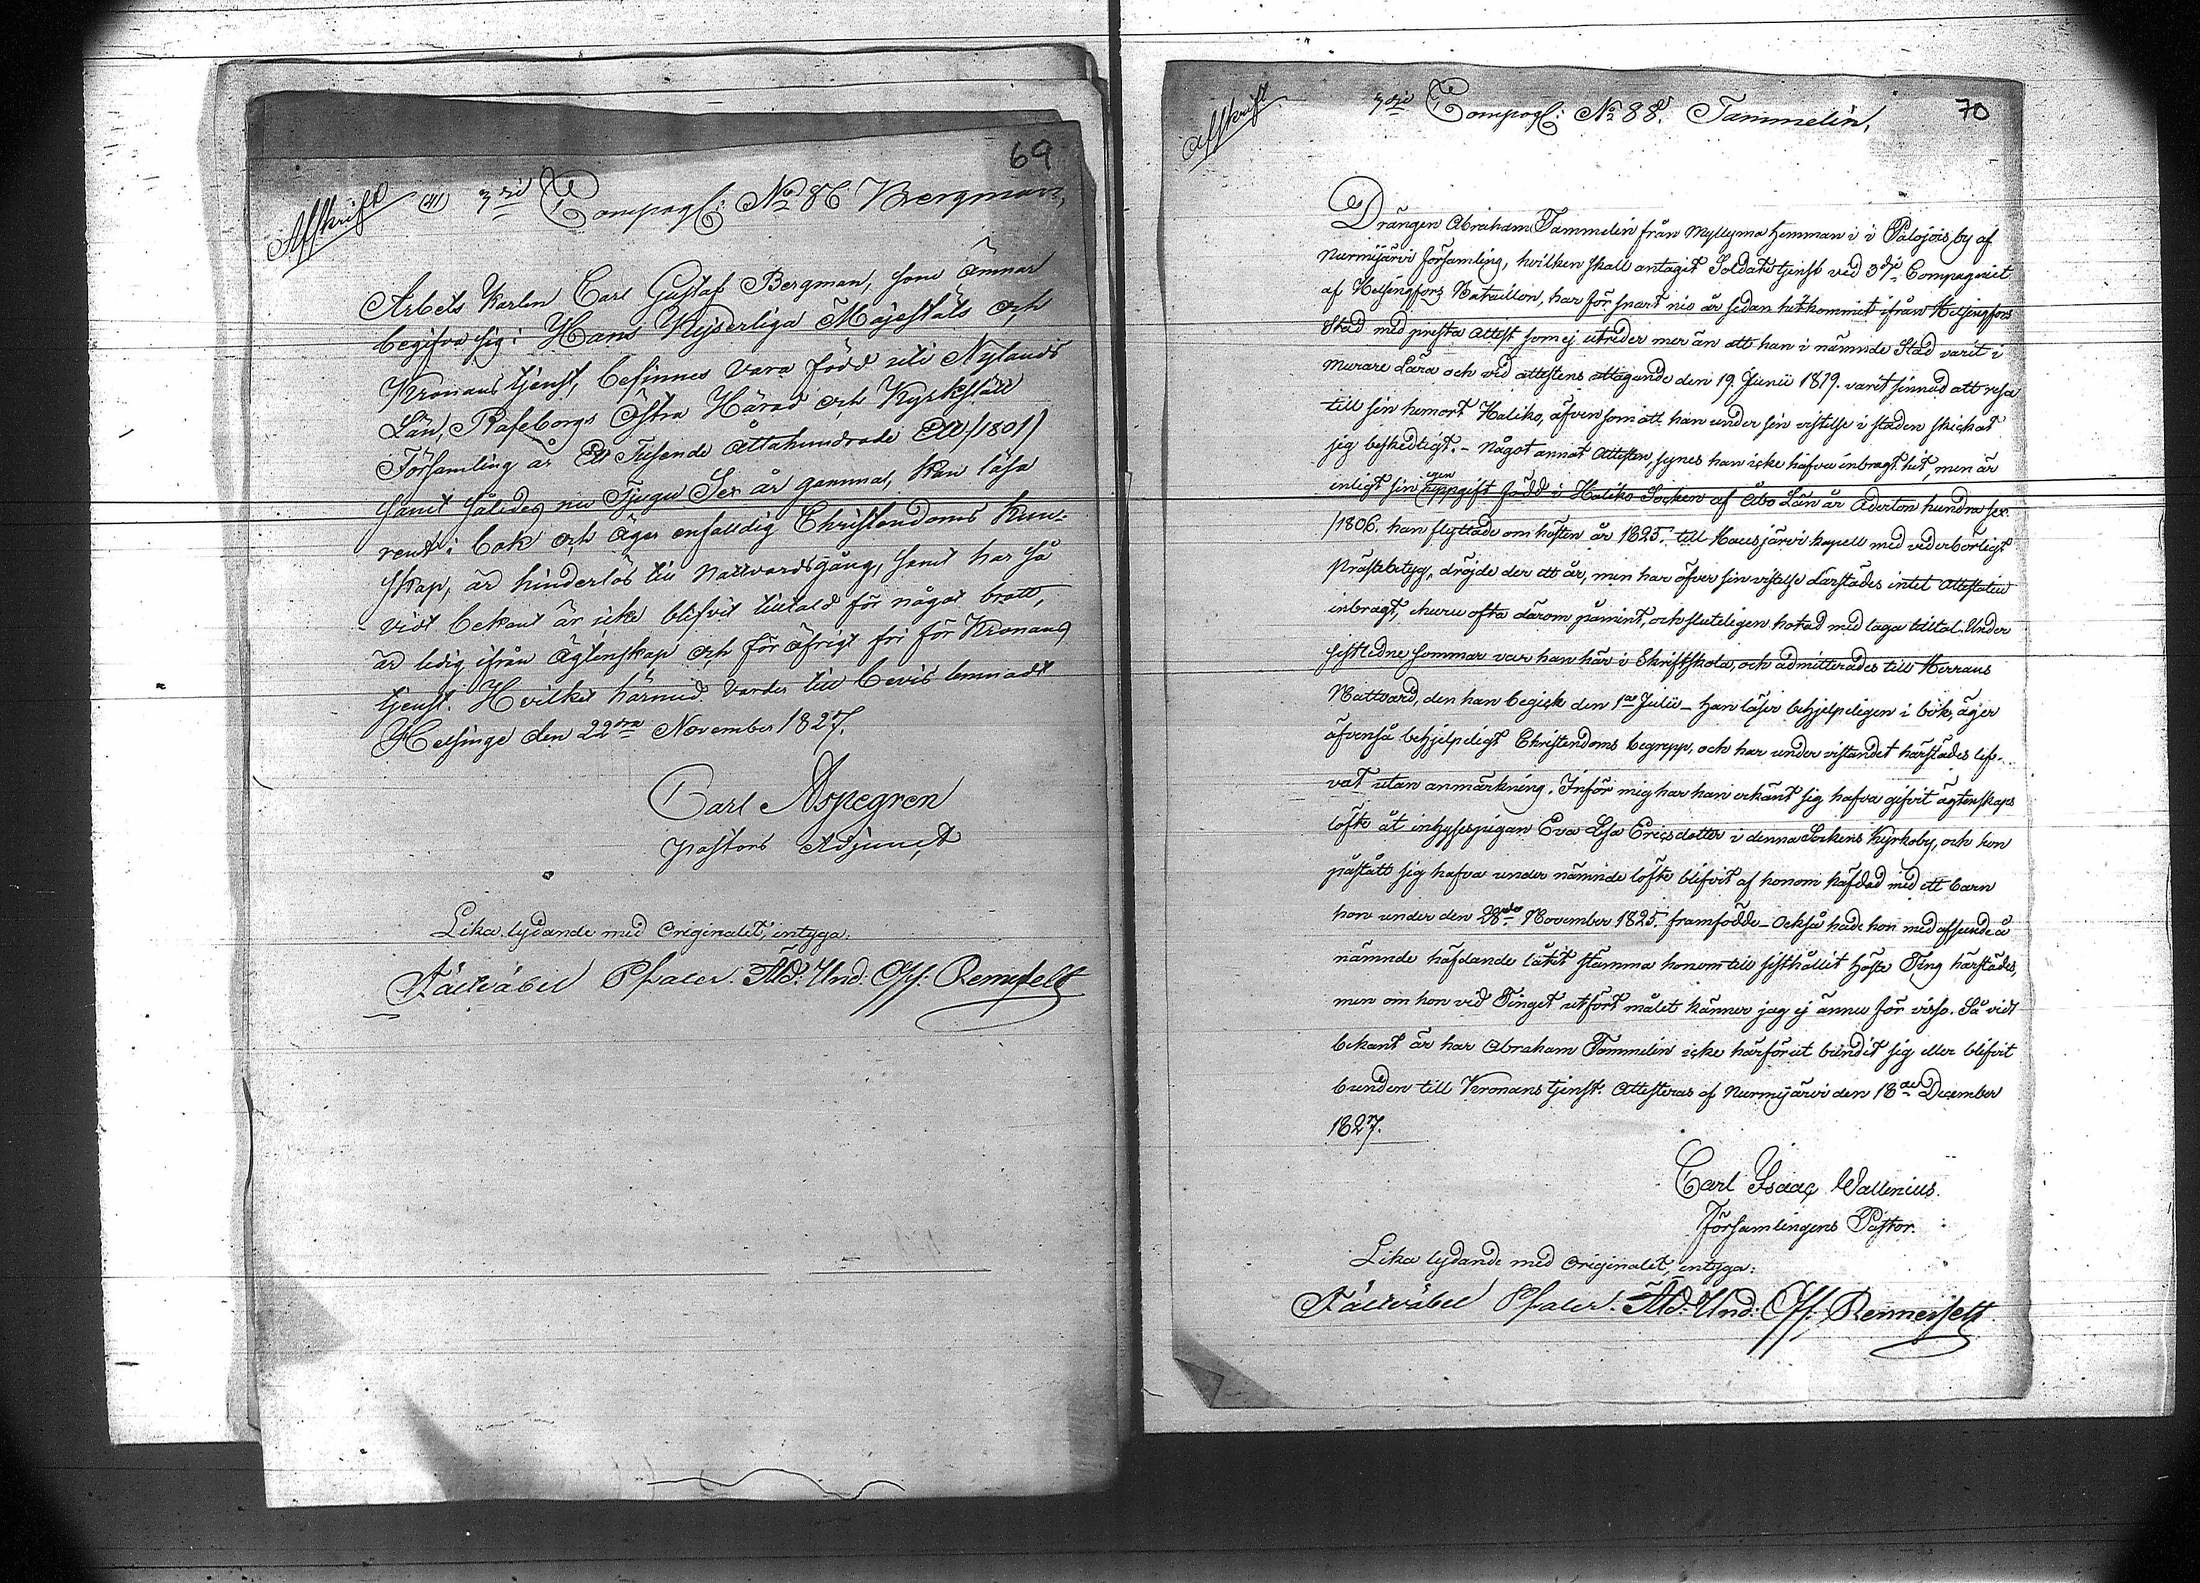 69
Afskrift 3die Compagn: No 86 Bergman,
Arbets Karlen Carl Gustaf Bergman, som ämnar
begifva sig i Hans Kejserliga Majestäts och
Kronans tjenst, befinnes vara född uti Nylands
Län, Raseborgs Östra Härad och Kyrkslätt
Församling år Ett Tusende Åttahundrade Ett /1801/
samt således nu Tjugu Sex år gammal, kan läsa
rent i bok och äger enfaldig Christendoms Kun-
skap, är hinderlös till Nattvardsgång, samt har så
vidt bekant är icke blifvit tilltald för något brott,
är ledig ifrån Ägtenskap och för öfrigt fri för Kronans
tjenst. Hvilket härmed varder till bevis lemnadt
Helsinge den 22dra November 1827.
Carl Aspegren
Pastors Adjunct
Lika lydande med Originalet, intyga:
Fältväbel Pfaler. Und: Off: Rennerfelt
70
Afskrift 3die Compagn: No 88. Tammelin,
Drängen Abraham Tammelin från Myllyma hemman i i Palojois by af
Nurmijärvi församling, hvilken skall antagit Soldats tjenst vid 3dje Compagniet
af Helsingfors Bataillon, har för snart nio år sedan hitkommit ifrån Helsingfors
Stad med presta attest som ej utreder mer än att han i nämnde Stad varit i
Murare Lära och vid attestens uttagande den 19. Junii 1819. varit sinnad att resa
till sin hemort Haliko, äfven som att han under sin vistelse i staden skickat
sig beskedligt. - Något annat Attesten, synes han icke hafva inbragt hit, men är
enligt sin egen uppgift född i Haliko Socken af Åbo Län år Aderton hundra sex
/1806. han flyttade om hösten år 1825. till Hausjärvi kapell med vederbörligt
Prästebetyg, dröjde der ett år, men har öfver sin vistelse darstädes intet Attestatum
inbragt, churu ofta därom påmint, och sluteligen hotad med laga tilltal. Under
sistledne sommar var han här i Skriftskola, och admitterades till Herrans
Nattvard, den han begick den 1sta Julii - han läser behjelpeligen i bok, äger
äfvenså behjelpeligt Christendoms begrepp, och har under vistandet härstädes lef-
vat utan anmärkning. Inför mig har han erkänt sig hafva gifvit ägtenskaps
löfte åt inhysespigan Eva Lisa Ericsdotter i denna Sockens Kyrkoby, och hon
påstått sig hafva under nämnde löfte blifvit af honom häfdad med ett barn
hon under den 28de November 1825. framfödde - Också hade hon med afseende å
nämnde häfdande låtit stämma honom till sisthållit Höste Ting härstädes,
men om hon vid Tinget utfört målet känner jag ej ännu för visso. Så vidt
bekant är har Abraham Tammelin icke härförut bundit sig eller blifvit
bunden till Kronans tjenst. Attesteras af Nurmijärvi den 18de December
1827.
Carl Isaac Wallenius.
Församlingens Pastor.
Lika lydande med Originalet, intyga:
Fältväbel Pfaler. Und: Off: Rennerfelt